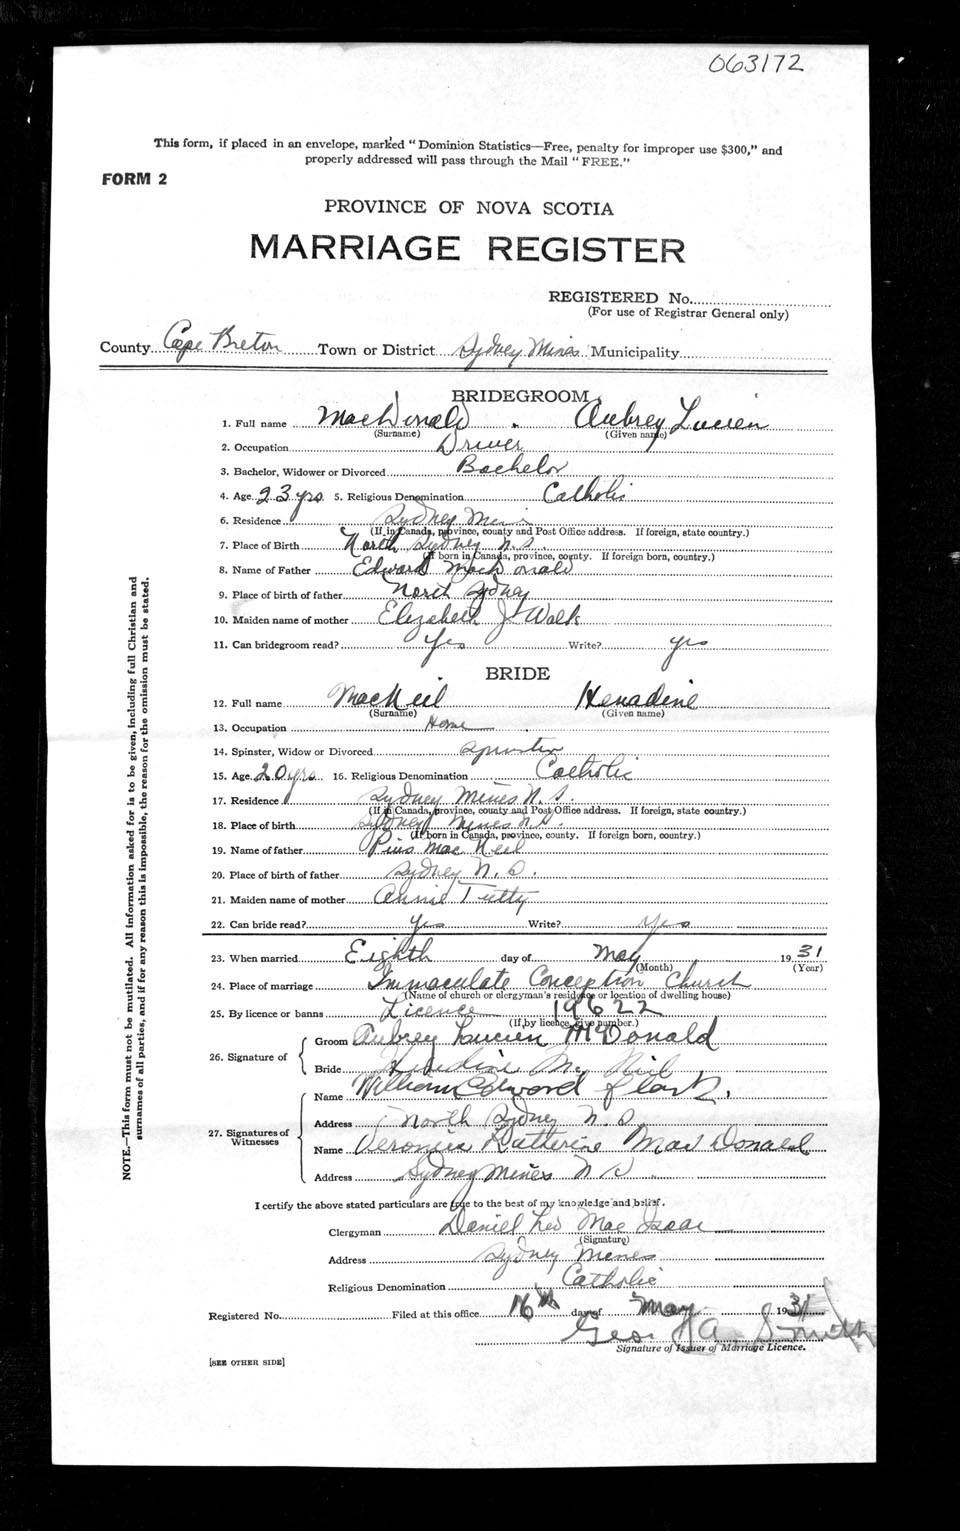 063172
This form, if placed in an envelope, marked "Dominion Statistics—Free, penalty for improper use $300," and
properly addressed will pass through the Mail "FREE."
FORM 2
PROVINCE OF NOVA SCOTIA
MARRIAGE REGISTER
REGISTERED No.
(For use of Registrar General only)
County Cape Breton Town or District Sydney Mines Municipality
BRIDEGROOM
1. Full name MacDonald Aubrey Lucien
(Surname) (Given name)
2. Occupation Driver
3. Bachelor, Widower or Divorced Bachelor
4. Age 23 yrs. 5. Religious Denomination Catholic
6. Residence Sydney Mines
(If in Canada, province, county and Post Office address. If foreign, state country.)
7. Place of Birth North Sydney N.S.
(If born in Canada, province, county. If foreign born, country.)
8. Name of Father Edward MacDonald
9. Place of birth of father North Sydney
10. Maiden name of mother Elizabeth J. Walsh
11. Can bridegroom read? Yes Write? yes
BRIDE
12. Full name MacNeil Kenadine
(Surname) (Given name)
13. Occupation Home
14. Spinster, Widow or Divorced Spinster
15. Age 20 yrs 16. Religious Denomination Catholic
17. Residence Sydney Mines N.S.
(If in Canada, province, county and Post Office address. If foreign, state country.)
18. Place of birth Sydney Mines N.S.
(If born in Canada, province, county. If foreign born, country.)
19. Name of father Pius MacNeil
20. Place of birth of father Sydney N.S.
21. Maiden name of mother Annie Tutty
22. Can bride read? yes Write? yes
23. When married Eighth day of May 1931
(Month) (Year)
24. Place of marriage Immaculate Conception Church
(Name of church or clergyman's residence or location of dwelling house)
25. By licence or banns Licence 19622
(If by licence, give number.)
26. Signature of Groom Aubrey Lucien McDonald
Bride Kenadine Mc Neil
27. Signatures of Witnesses Name William Edward
Address North Sydney N.S.
Name Veronica Katherine MacDonald
Address Sydney Mines N S
I certify the above stated particulars are true to the best of my knowledge and belief.
Clergyman Daniel Leo MacIsaac
(Signature)
Address Sydney Mines
Religious Denomination Catholic
Registered No. Filed at this office 16th day of May 1931
Geo A Smith
Signature of Issuer of Marriage Licence.
[SEE OTHER SIDE]
NOTE.—This form must not be mutilated. All information asked for is to be given, including full Christian and
surnames of all parties, and if for any reason this is impossible, the reason for the omission must be stated.